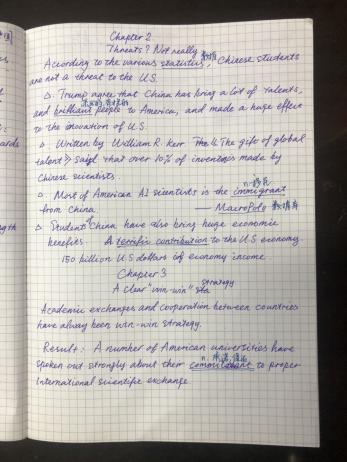 Chapter 2
Threats? Not really
According to the various statistics, 数据 Chinese students
are not a threat to the U.S.
△. Trump agree that China has bring a lot of talents,
and brilliant people to America, and made a huge effect
to the innovation of U.S.
△. Written by William R. Kerr The 《The gift of global
talent》 said that over 10% of inventions made by
Chinese scientists.
△. Most of American AI scientists is the immigrant
from China —— MacroPolo 数据库
△ Students China have also bring huge economic
benefits. A terrific contribution to the U.S economy
150 billion U.S dollars of economy income
Chapter 3
A clear "win-win" strategy
Academic exchanges and cooperation between countries
have alway been win-win strategy.
Result: A number of American universities have
spoken out strongly about their commitment to proper
International scientific exchange